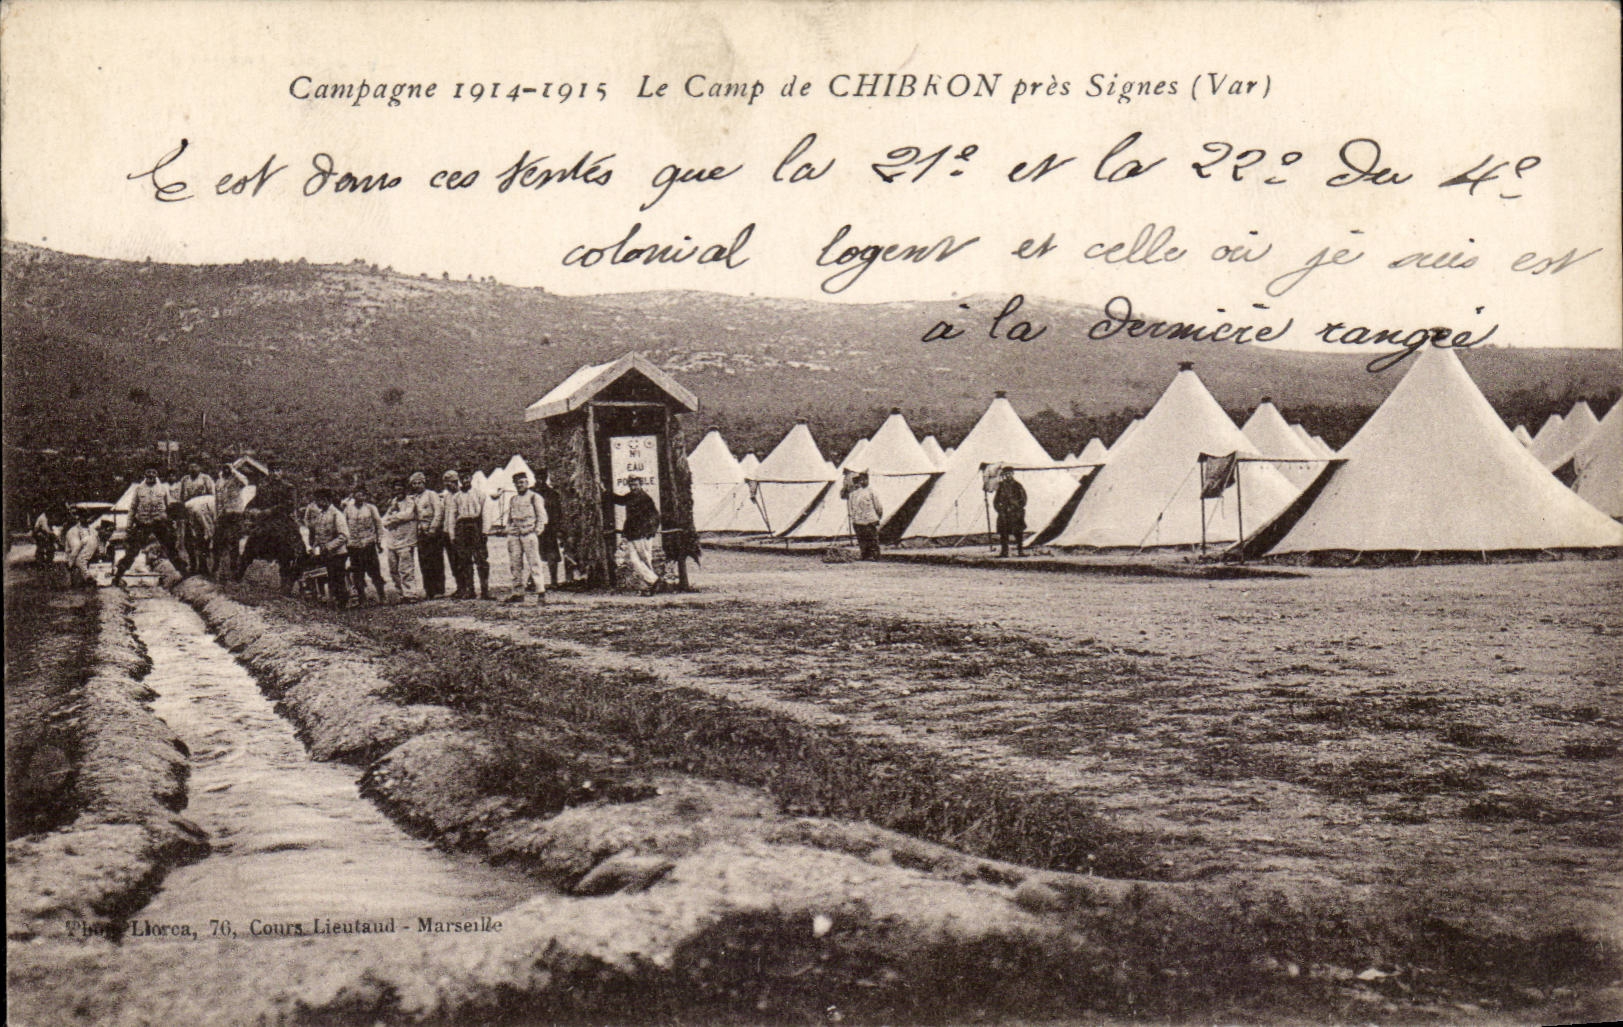 Campagne 1914-1915 Le Camp de CHIBRON près Signes (Var)
C est dans ces tentés que la 21e et la 22e du 4e
colonial logent et celle où je suis est
à la dernière rangée
No 1
EAU
POTABLE
Phot. Llorca, 76, Cours Lieutaud - Marseille